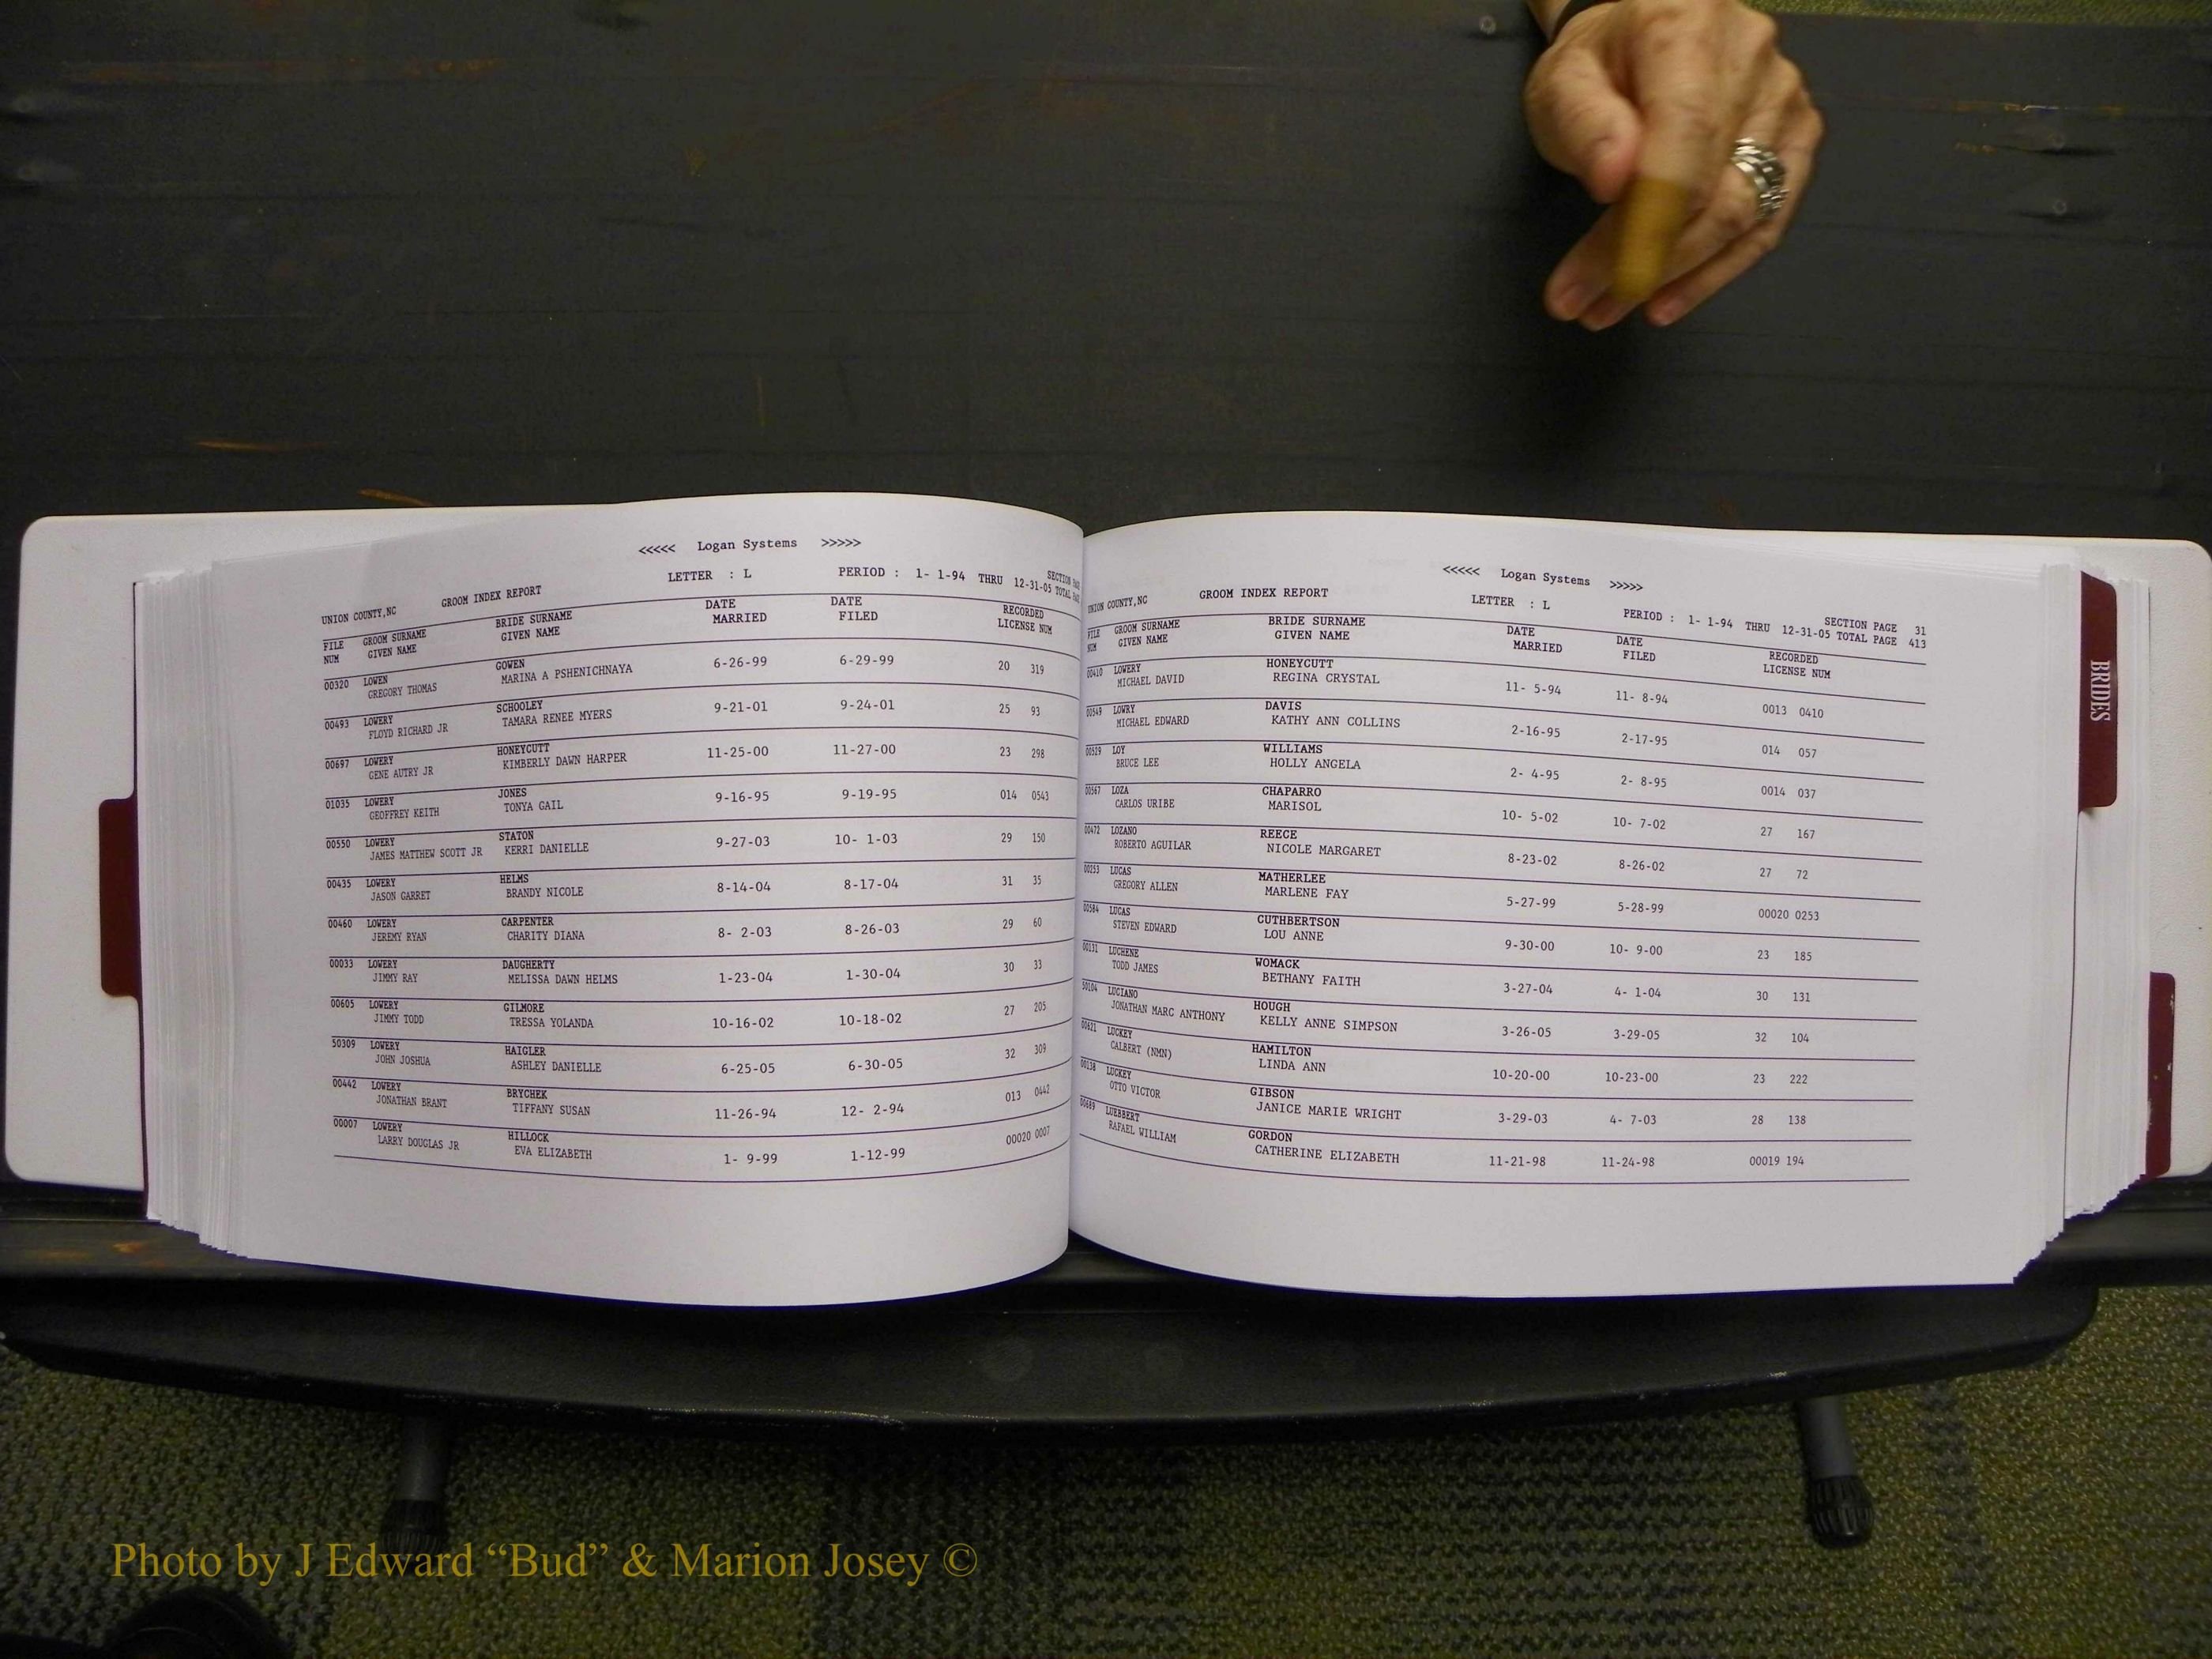 <<<<< Logan Systems >>>>>
UNION COUNTY,NC GROOM INDEX REPORT LETTER : L PERIOD : 1- 1-94 THRU 12-31-05 SECTION
TOTAL
FILE GROOM SURNAME BRIDE SURNAME DATE DATE RECORDED
NUM GIVEN NAME GIVEN NAME MARRIED FILED LICENSE NUM
00320 LOWEN GOWEN 6-26-99 6-29-99 20 319
GREGORY THOMAS MARINA A PSHENICHNAYA
00493 LOWERY SCHOOLEY 9-21-01 9-24-01 25 93
FLOYD RICHARD JR TAMARA RENEE MYERS
00697 LOWERY HONEYCUTT 11-25-00 11-27-00 23 298
GENE AUTRY JR KIMBERLY DAWN HARPER
01035 LOWERY JONES 9-16-95 9-19-95 014 0543
GEOFFREY KEITH TONYA GAIL
00550 LOWERY STATON 9-27-03 10- 1-03 29 150
JAMES MATTHEW SCOTT JR KERRI DANIELLE
00435 LOWERY HELMS 8-14-04 8-17-04 31 35
JASON GARRET BRANDY NICOLE
00460 LOWERY CARPENTER 8- 2-03 8-26-03 29 60
JEREMY RYAN CHARITY DIANA
00033 LOWERY DAUGHERTY 1-23-04 1-30-04 30 33
JIMMY RAY MELISSA DAWN HELMS
00605 LOWERY GILMORE 10-16-02 10-18-02 27 205
JIMMY TODD TRESSA YOLANDA
50309 LOWERY HAIGLER 6-25-05 6-30-05 32 309
JOHN JOSHUA ASHLEY DANIELLE
00442 LOWERY BRYCHEK 11-26-94 12- 2-94 013 0442
JONATHAN BRANT TIFFANY SUSAN
00007 LOWERY HILLOCK 1- 9-99 1-12-99 00020 0007
LARRY DOUGLAS JR EVA ELIZABETH
<<<<< Logan Systems >>>>>
UNION COUNTY,NC GROOM INDEX REPORT LETTER : L PERIOD : 1- 1-94 THRU 12-31-05 SECTION PAGE 31
TOTAL PAGE 413
FILE GROOM SURNAME BRIDE SURNAME DATE DATE RECORDED
NUM GIVEN NAME GIVEN NAME MARRIED FILED LICENSE NUM
00410 LOWERY HONEYCUTT 11- 5-94 11- 8-94 0013 0410
MICHAEL DAVID REGINA CRYSTAL
00549 LOWRY DAVIS 2-16-95 2-17-95 014 057
MICHAEL EDWARD KATHY ANN COLLINS
00529 LOY WILLIAMS 2- 4-95 2- 8-95 0014 037
BRUCE LEE HOLLY ANGELA
00567 LOZA CHAPARRO 10- 5-02 10- 7-02 27 167
CARLOS URIBE MARISOL
00472 LOZANO REECE 8-23-02 8-26-02 27 72
ROBERTO AGUILAR NICOLE MARGARET
00253 LUCAS MATHERLEE 5-27-99 5-28-99 00020 0253
GREGORY ALLEN MARLENE FAY
00584 LUCAS CUTHBERTSON 9-30-00 10- 9-00 23 185
STEVEN EDWARD LOU ANNE
00131 LUCHENE WOMACK 3-27-04 4- 1-04 30 131
TODD JAMES BETHANY FAITH
50104 LUCIANO HOUGH 3-26-05 3-29-05 32 104
JONATHAN MARC ANTHONY KELLY ANNE SIMPSON
00621 LUCKEY HAMILTON 10-20-00 10-23-00 23 222
CALBERT (NMN) LINDA ANN
00138 LUCKEY GIBSON 3-29-03 4- 7-03 28 138
OTTO VICTOR JANICE MARIE WRIGHT
00689 LUEBBERT GORDON 11-21-98 11-24-98 00019 194
RAFAEL WILLIAM CATHERINE ELIZABETH
BRIDES
Photo by J Edward “Bud” & Marion Josey ©